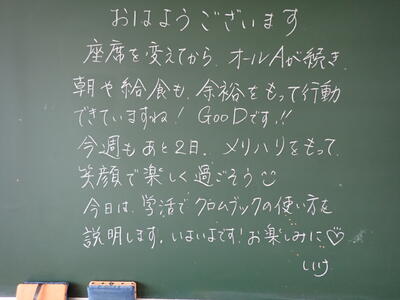 おはようございます
座席を変えてから、オールAが続き、
朝や給食も、余裕をもって行動
できていますね！ GooDです!!
今週もあと2日。メリハリをもって、
笑顔で楽しく過ごそう
今日は、学活でクロムブックの使い方を
説明します。いよいよです！お楽しみに♡